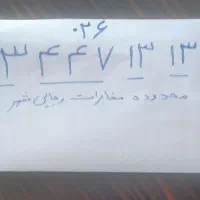 ۰۲۶
۳ ۴۴۷ ۱۳ ۱۳
محدوده مخابرات رجایی شهر